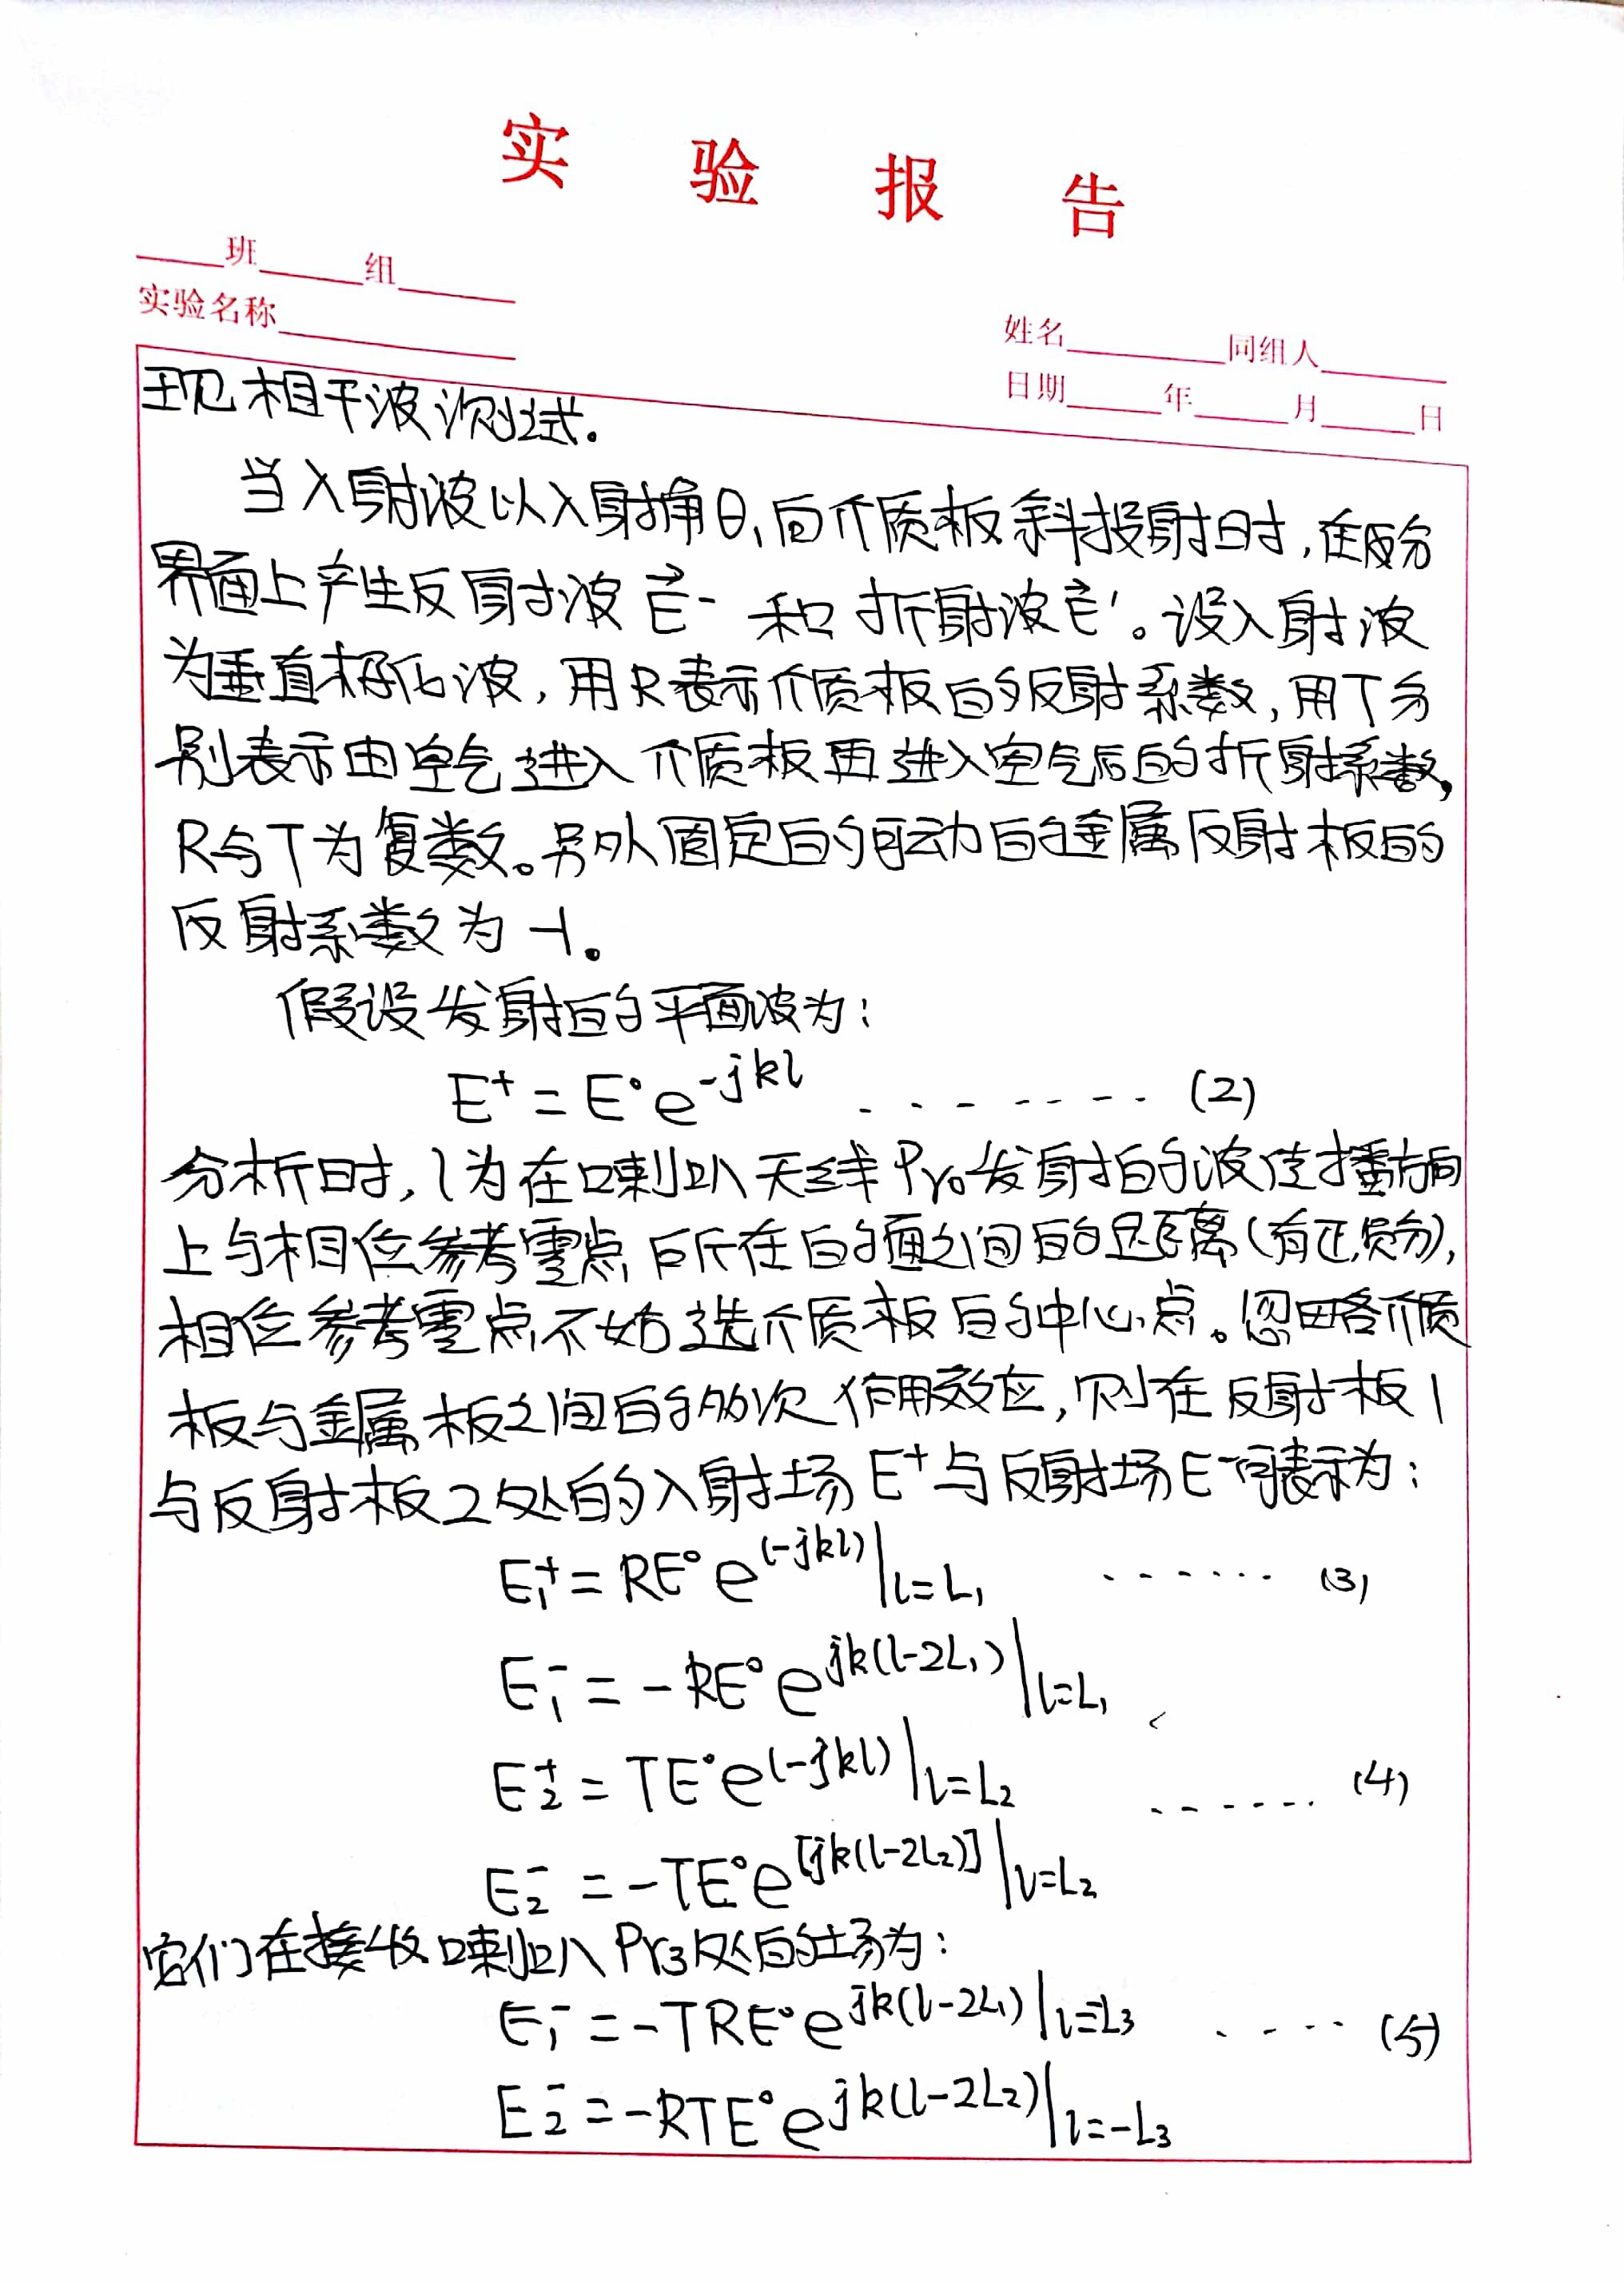 实 验 报 告
____班______组______
实验名称____________
姓名________同组人______
日期_____年_____月_____日
现相干波测试。
当入射波以入射角θ₁向介质板斜投射时,在分
界面上产生反射波E⃗⁻ 和 折射波E⃗'。设入射波
为垂直极化波,用R表示介质板的反射系数,用T分
别表示由空气进入介质板再进入空气后的折射系数,
R与T为复数。另外固定的可动的金属反射板的
反射系数为-1。
假设发射的平面波为:
E⁺ = E°e^{-jkl} ········ (2)
分析时,l为在喇叭天线Pr₀发射的波传播方向
上与相位参考零点所在的面之间的距离(有正,负分),
相位参考零点不妨选介质板的中心点。忽略介质
板与金属板之间的多次作用效应,则在反射板1
与反射板2处的入射场E⁺与反射场E⁻可表示为:
E₁⁺ = RE°e^{(-jkl)}|l=L₁ ······ (3)
E₁⁻ = -RE°e^{jk(l-2L₁)}|l=L₁
E₂⁺ = TE°e^{(-jkl)}|l=L₂ ······ (4)
E₂⁻ = -TE°e^{[jk(l-2L₂)]}|l=L₂
它们在接收喇叭Pr₃处的场为:
E₁⁻ = -TRE°e^{jk(l-2L₁)}|l=L₃ ····· (5)
E₂⁻ = -RTE°e^{jk(l-2L₂)}|l=-L₃